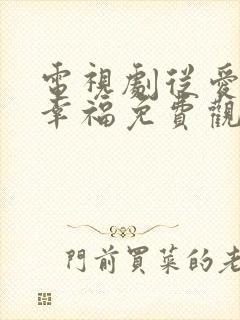 電視劇從愛
幸福免費觀
門前買菜的老